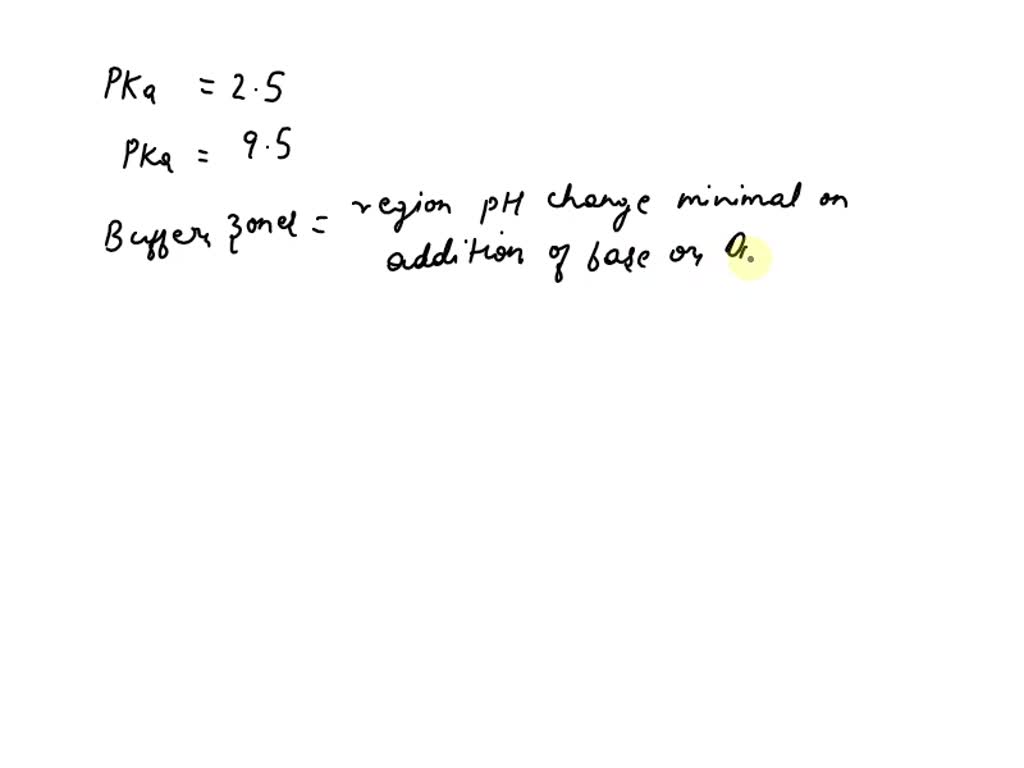 PKa = 2.5
PKa = 9.5
Buffer zoned = region pH change minimal on
addition of base or